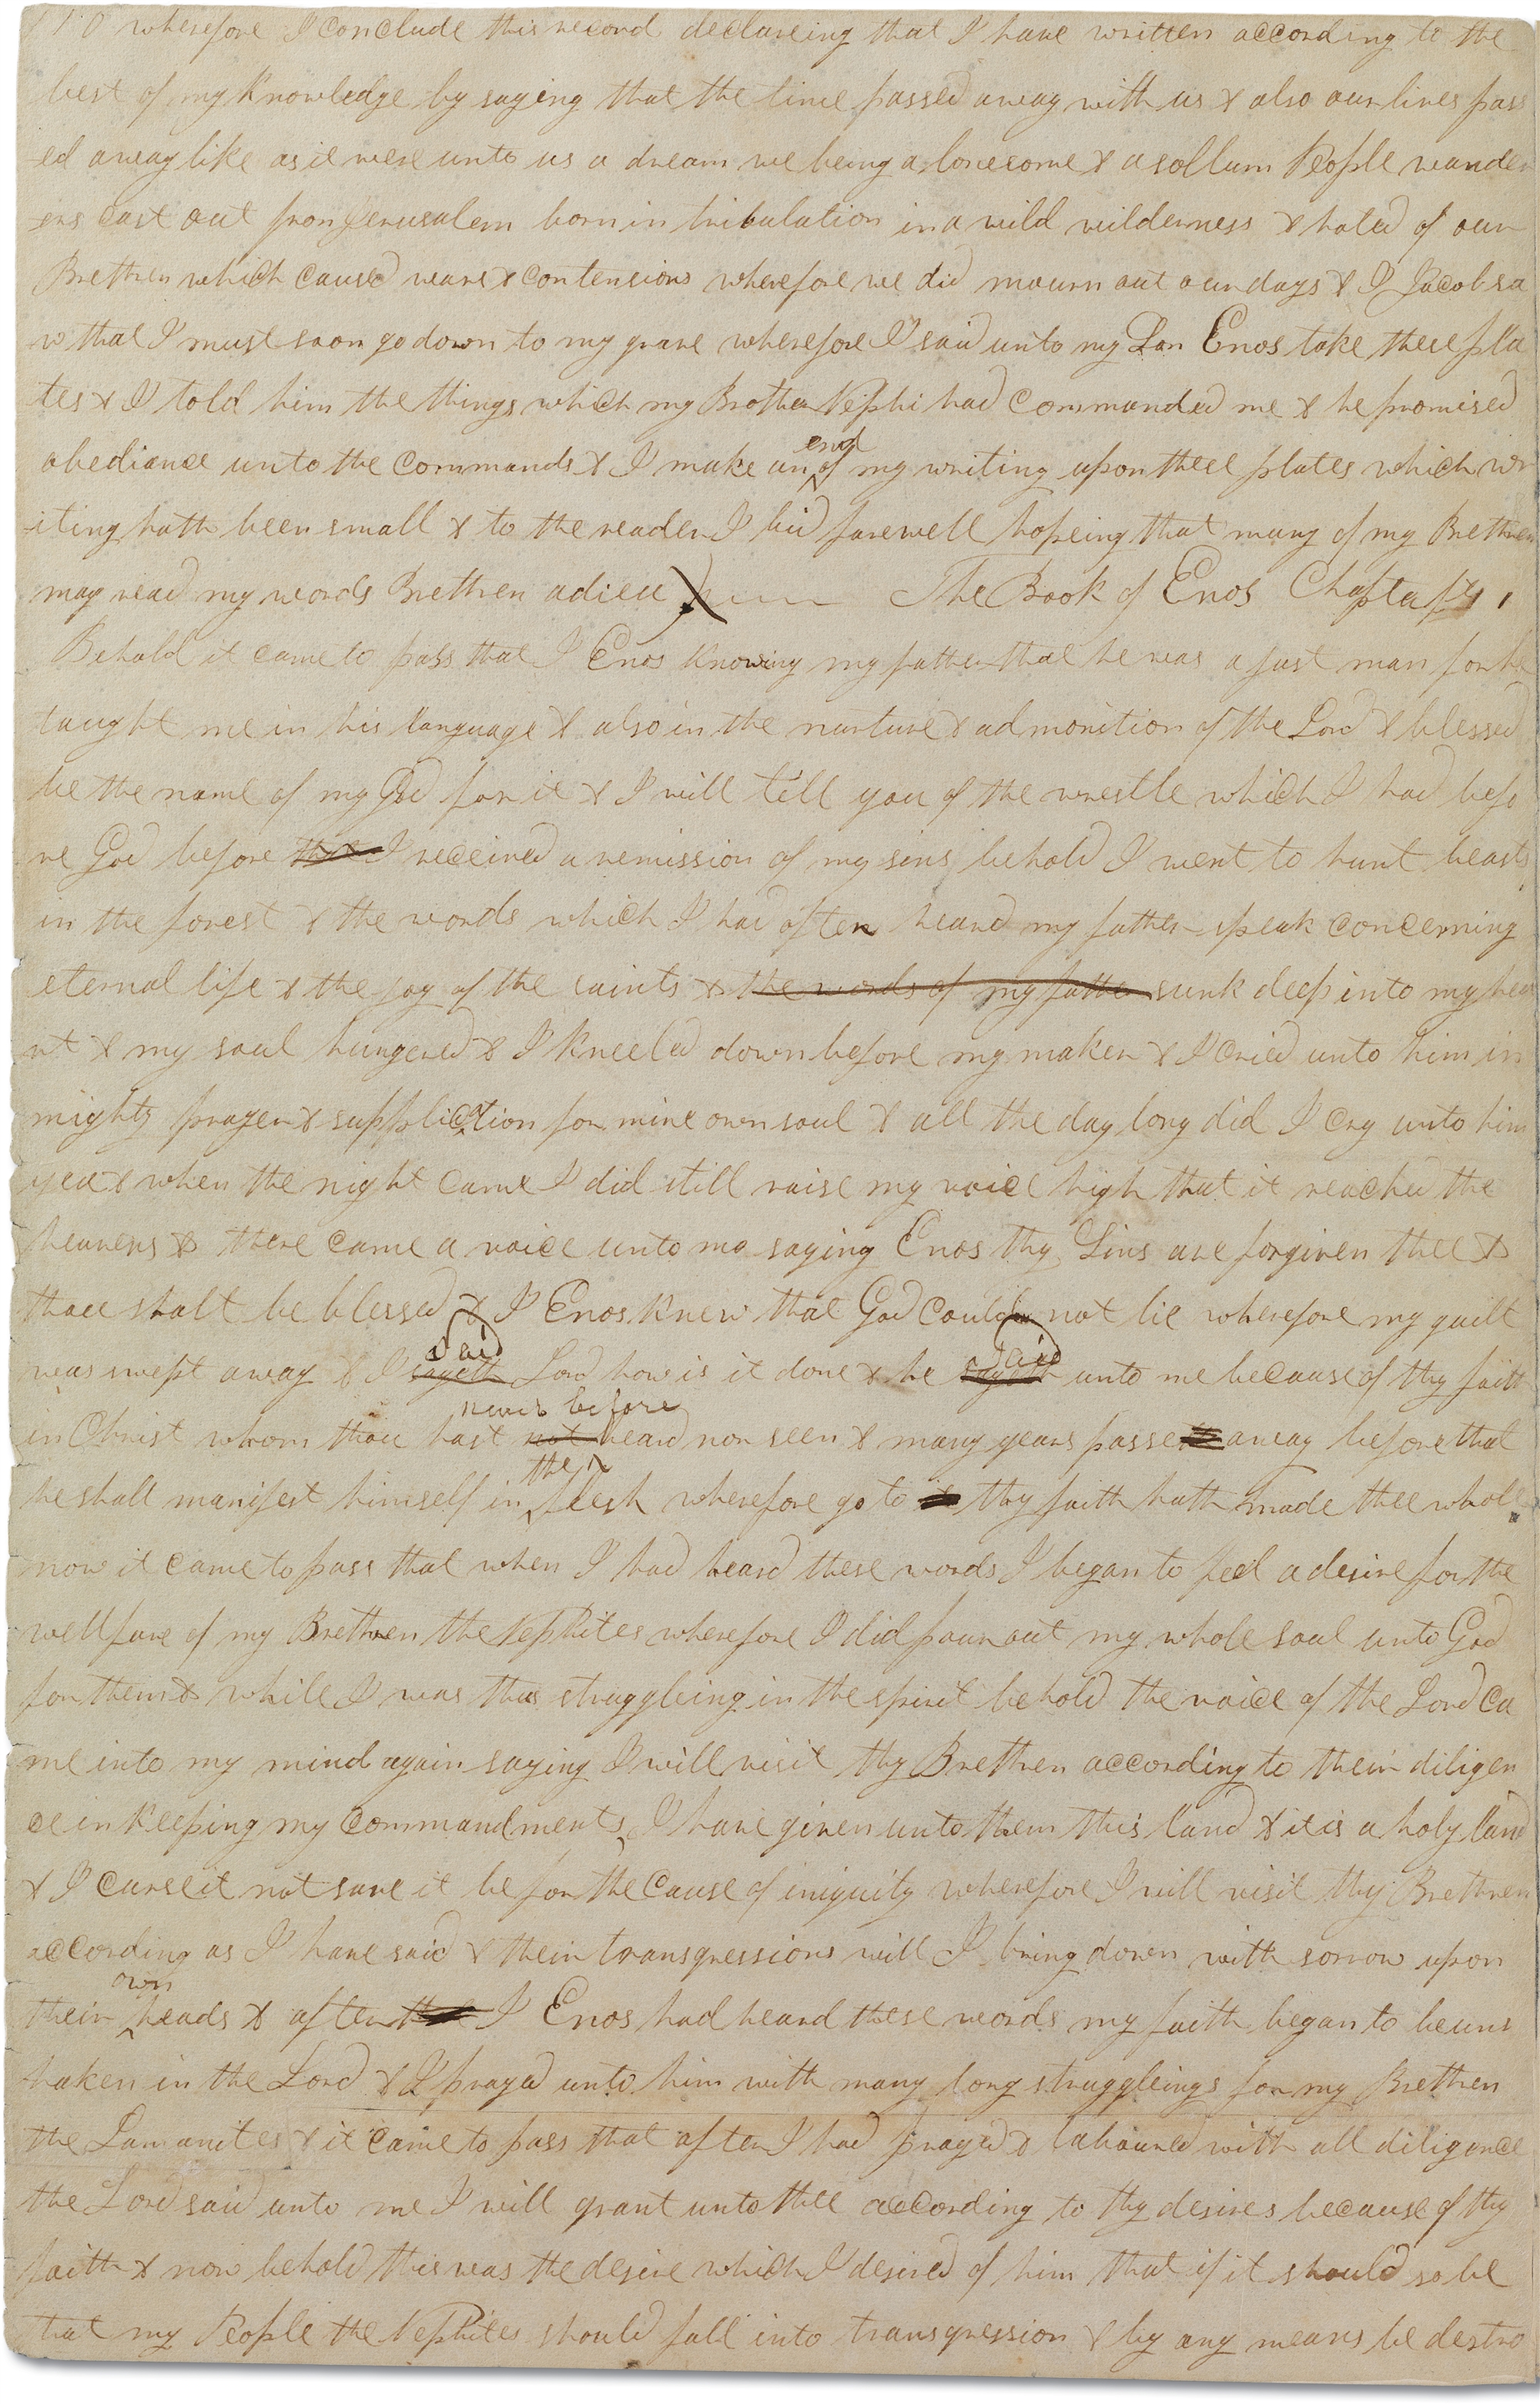 110 wherefore I conclude this record declareing that I have written according to the
best of my Knowledge by saying that the time passed away with us & also our lives pass
-ed away like as it were unto us a dream we being a lonesome & a sollum People wander
-ers cast out from Jerusalem born in tribulation in a wild wilderness & hated of our
Brethren which caused wars & contensions wherefore we did mourn out our days & I Jacob sa
w that I must soon go down to my grave wherefore I said unto my Son Enos take these pla
tes & I told him the things which my Brother Nephi had commanded me & he promised
obediance unto the commands & I make an end of my writing upon these plates which wr
-iting hath been small & to the reader I bid farewell hopeing that many of my Brethren
may read my words Brethren adieu The Book of Enos Chapter 1
Behold it came to pass that I Enos Knowing my father that he was a just man for he
taught me in his language & also in the nurture & admonition of the Lord & blessed
be the name of my God for it & I will tell you of the wrestle which I had befo
re God before I received a remission of my sins behold I went to hunt beasts
in the forest & the words which I had often heard my father speak concerning
eternal life & the joy of the saints & the words of my father sunk deep into my hea
rt & my soul hungered & I kneeled down before my maker & I cried unto him in
mighty prayer & supplication for mine own soul & all the day long did I cry unto him
yea & when the night came I did still raise my voice high that it reached the
heavens & there came a voice unto me saying Enos thy Sins are forgiven thee &
thou shalt be blessed & I Enos Knew that God could not lie wherefore my guilt
was swept away & I sayeth said Lord how is it done & he sayeth said unto me because of thy faith
in Christ whom thou hast not never before heard nor seen & many years passeth away before that
he shall manifest himself in the flesh wherefore go to it thy faith hath made thee whole
now it came to pass that when I had heard these words I began to feel a desire for the
wellfare of my Brethren the Nephites wherefore I did pour out my whole soul unto God
for them & while I was thus struggleing in the spirit behold the voice of the Lord ca
me into my mind again saying I will visit thy Brethren according to their diligen
ce in Keeping my commandments I have given unto them this land & it is a holy land
& I curse it not save it be for the cause of iniquity wherefore I will visit thy Brethren
according as I have said & their transgressions will I bring down with sorrow upon
their own heads & after I Enos had heard these words my faith began to be uns
haken in the Lord & I prayed unto him with many long struggleings for my Brethren
the Lamanites & it came to pass that after I had prayed & laboured with all diligence
the Lord said unto me I will grant unto thee according to thy desires because of thy
faith & now behold this was the desire which I desired of him that if it should so be
that my People the Nephites should fall into transgression & by any means be destro